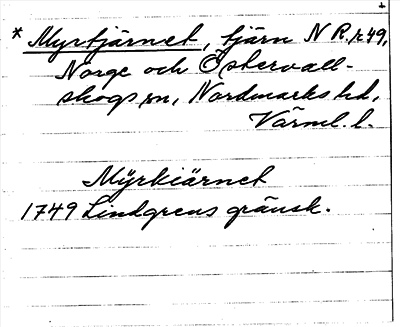 * Myrtjärnet, tjärn N R.r. 49,
Norge och Östervall-
skogs sn, Nordmarks hd,
Värml. l.
Mÿrkiärnet
1749 Lindgrens gränsk.